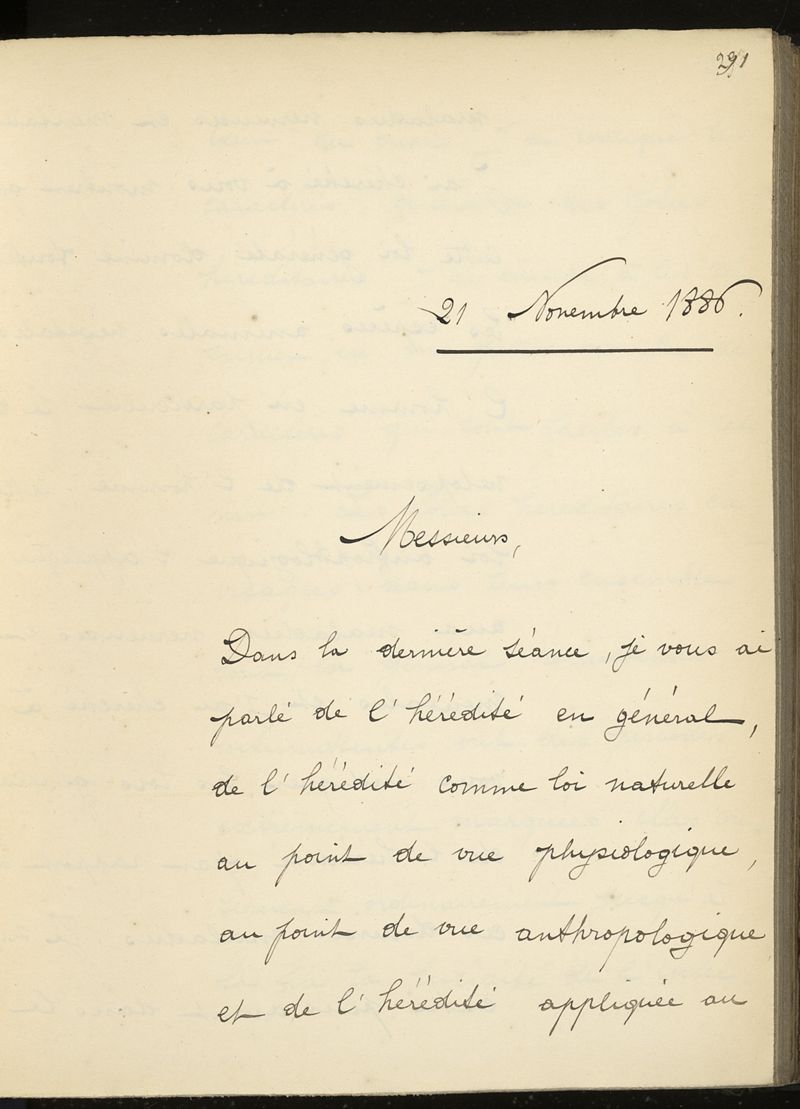 291
21 Novembre 1886.
Messieurs,
Dans la dernière séance, je vous ai
parlé de l'hérédité en général,
de l'hérédité comme loi naturelle
au point de vue physiologique,
au point de vue anthropologique
et de l'hérédité appliquée au